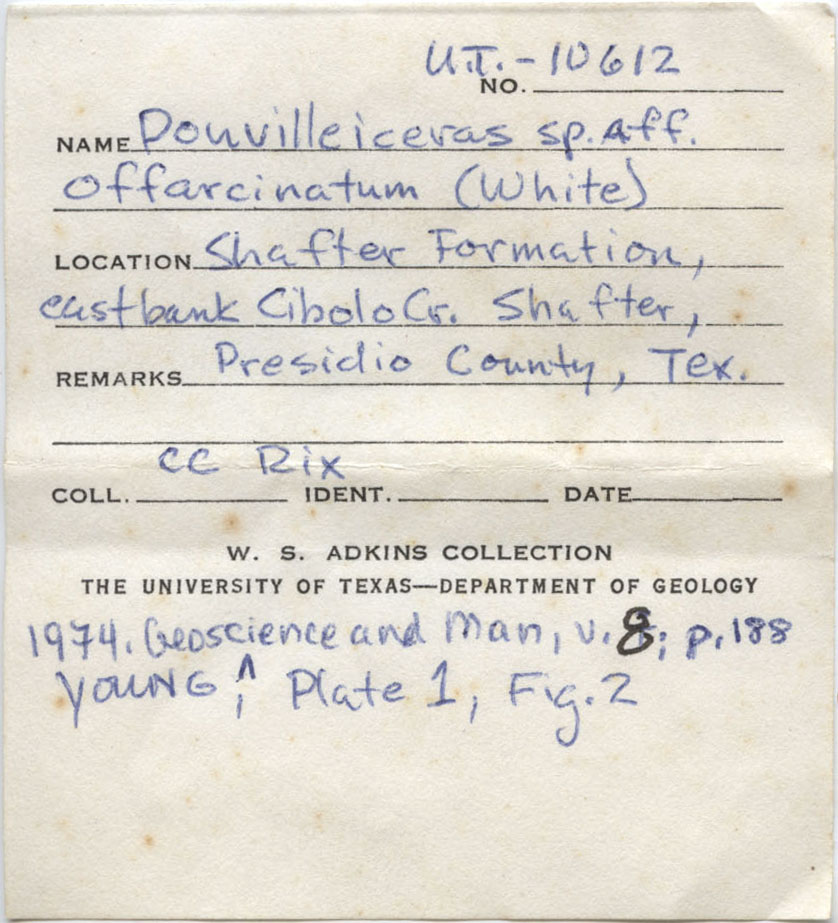 U.T.-10612
NO.
NAME Douvilleiceras sp. aff.
offarcinatum (White)
LOCATION Shafter Formation,
east bank Cibolo Cr. Shafter,
REMARKS Presidio County, Tex.
CC Rix
COLL. IDENT. DATE
W. S. ADKINS COLLECTION
THE UNIVERSITY OF TEXAS—DEPARTMENT OF GEOLOGY
1974. Geoscience and Man, v. 8; p. 188
YOUNG, ^ Plate 1, Fig. 2